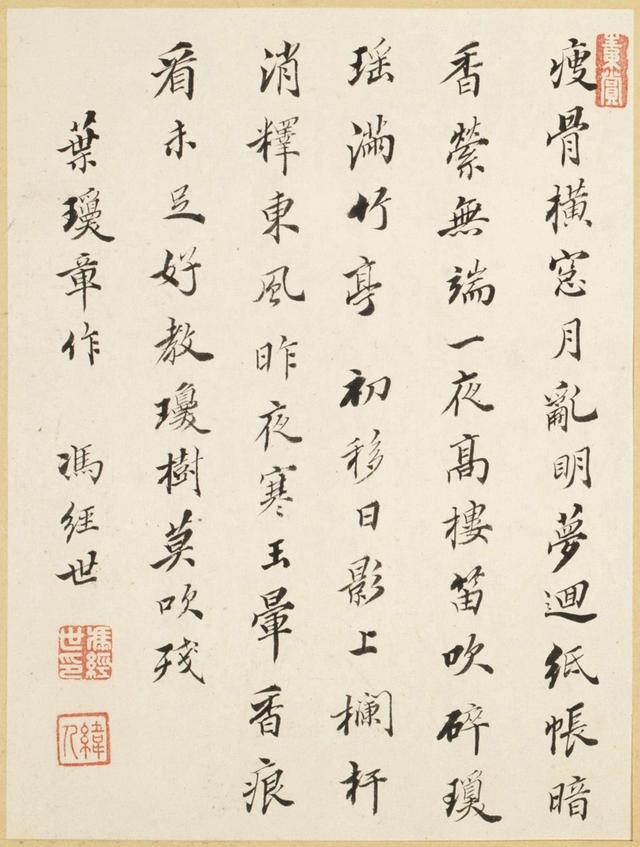 瘦骨橫窓月亂明夢迴紙帳暗
香縈無端一夜高樓笛吹碎瓊
瑶滿竹亭 初移日影上欄杆
消釋東風昨夜寒玉暈香痕
看未足好教瓊樹莫吹殘
葉瓊章作 馮經世
馮經世印
緯人